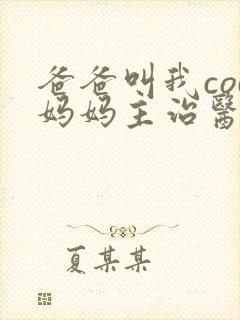 爸爸叫我co
妈妈主治醫
夏某某